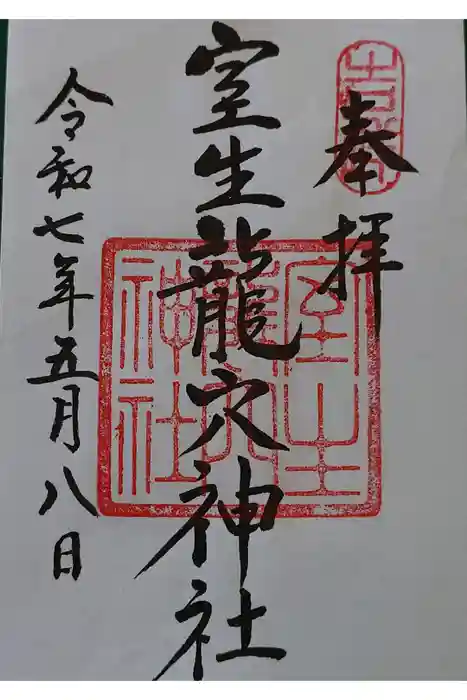 奉拝
室生龍穴神社
令和七年五月八日
室生
龍穴
神社